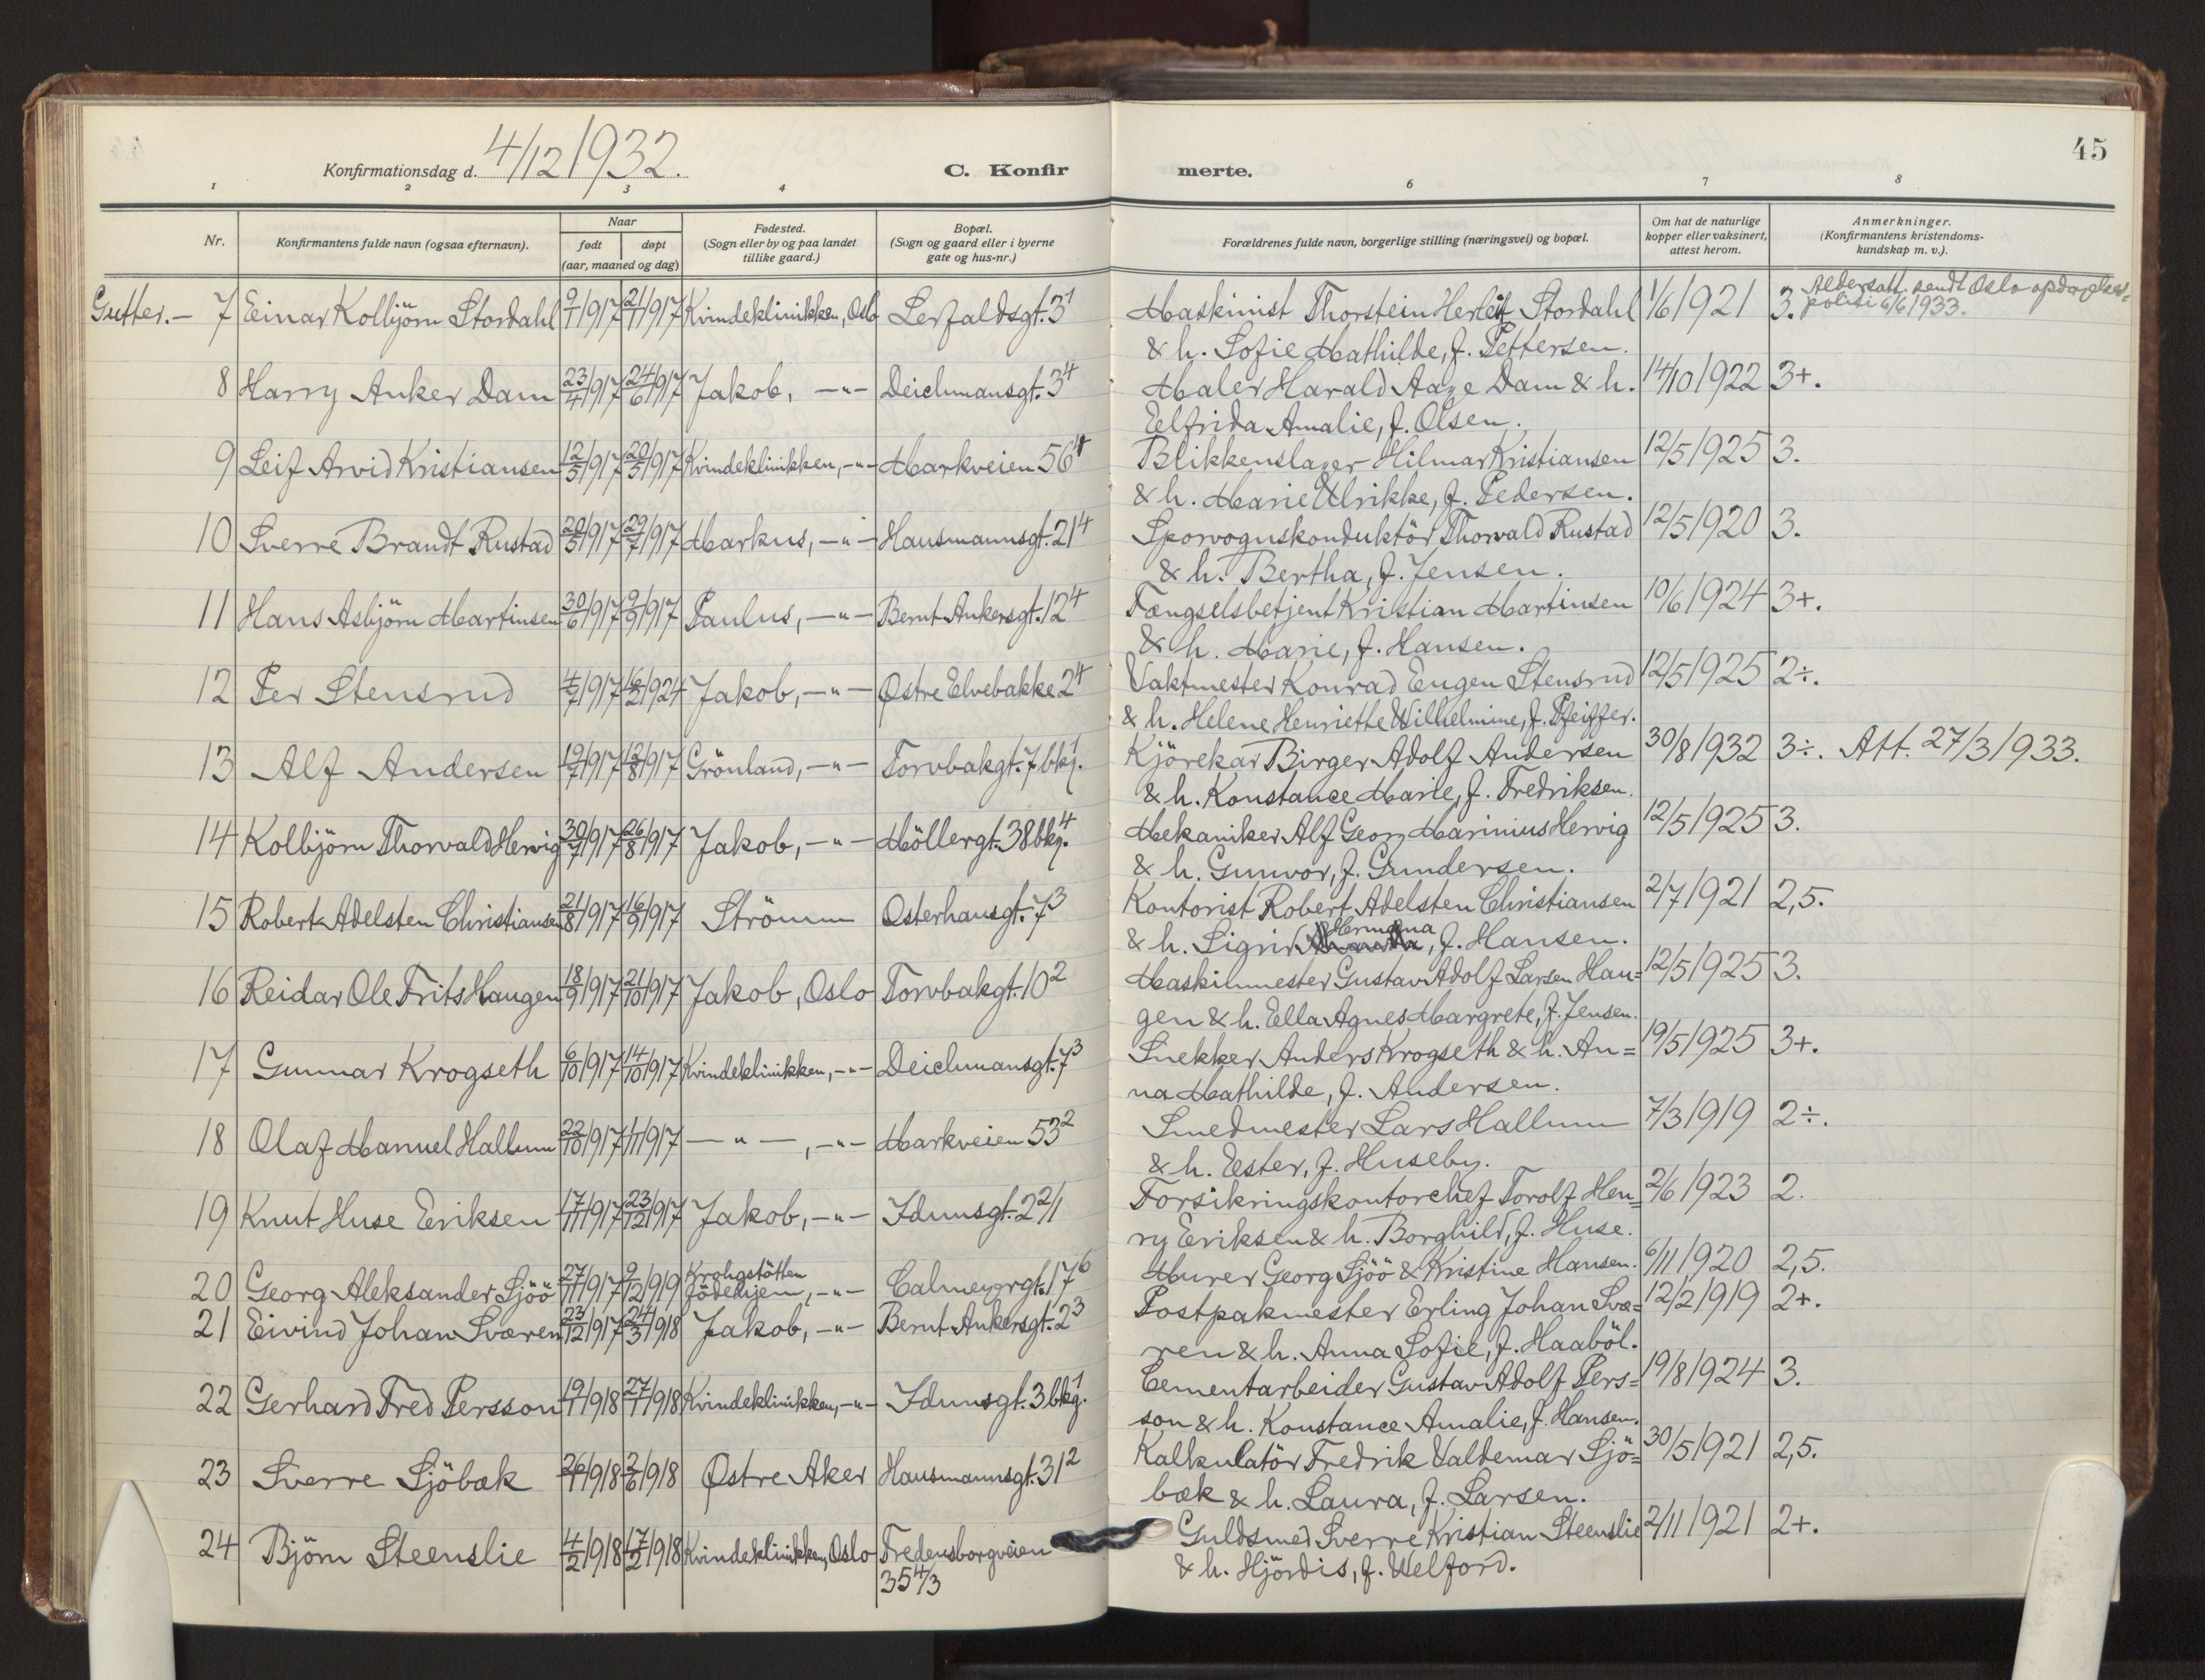 Konfirmationsdag d. 4/12 1932.
C. Konfirmerte.
45
1 2 3 4 6 7 8
Nr.
Konfirmantens fulde navn (ogsaa efternavn).
Naar
født døpt
(aar, maaned og dag)
Fødested.
(Sogn eller by og paa landet
tillike gaard.)
Bopæl.
(Sogn og gaard eller i byerne
gate og hus-nr.)
Forældrenes fulde navn, borgerlige stilling (næringsvei) og bopæl.
Om hat de naturlige
kopper eller vaksinert,
attest herom.
Anmerkninger.
(Konfirmantens kristendoms-
kundskap m. v.).
Gutter.- 7 Einar Kolbjörn Stordahl 9/1 1917 21/1 1917 Kvindeklinikken, Oslo Lerfaldsgt. 3¹ Maskinist Thorstein Herleif Stordahl 1/6 1921 3. Aldersatt. sendt Oslo opdagelses=
politi 6/6 1933.
& h. Sofie Mathilde, f. Pettersen.
8 Harry Anker Dam 23/4 1917 24/6 1917 Jakob, -"- Deichmansgt. 3⁴ Maler Harald Aage Dam & h. 14/10 1922 3+.
Elfrida Amalie, f. Olsen.
9 Leif Arvid Kristiansen 12/5 1917 20/5 1917 Kvindeklinikken, -"- Markveien 56⁴ Blikkenslager Hilmar Kristiansen 12/5 1925 3.
& h. Marie Ulrikke, f. Pedersen.
10 Sverre Brandt Rustad 20/5 1917 29/7 1917 Markus, -"- Hausmannsgt. 21⁴ Sporvognskonduktör Thorvald Rustad 12/5 1920 3.
& h. Bertha, f. Jensen.
11 Hans Asbjörn Martinsen 30/6 1917 9/9 1917 Paulus, -"- Bernt Ankersgt. 12⁴ Fængselsbetjent Kristian Martinsen 10/6 1924 3+.
& h. Marie, f. Hansen.
12 Per Stensrud 4/7 1917 16/2 1924 Jakob, -"- Østre Elvebakke 2⁴ Vaktmester Konrad Eugen Stensrud 12/5 1925 2÷.
& h. Helene Henriette Wilhelmine, f. Pfeiffer.
13 Alf Andersen 19/7 1917 12/8 1917 Grönland, -"- Torvbakgt. 7 bkg.¹ Kjörekar Birger Adolf Andersen 30/8 1932 3÷. Att. 27/3 1933.
& h. Konstance Marie, f. Fredriksen.
14 Kolbjörn Thorvald Hervig 30/7 1917 26/8 1917 Jakob, -"- Möllergt. 38 bkg.⁴ Mekaniker Alf Georg Marinius Hervig 12/5 1925 3.
& h. Gunvor, f. Gundersen.
15 Robert Adelsten Christiansen 21/8 1917 16/9 1917 Strömm Osterhausgt. 7³ Kontorist Robert Adelsten Christiansen 2/7 1921 2,5.
& h. Sigrid Hermana, f. Hansen.
16 Reidar Ole Frits Haugen 18/9 1917 21/10 1917 Jakob, Oslo Torvbakgt. 10² Maskinmester Gustav Adolf Larsen Hau= 12/5 1925 3.
gen & h. Ella Agnes Margrete, f. Jensen.
17 Gunnar Krogseth 6/10 1917 14/10 1917 Kvindeklinikken, -"- Deichmansgt. 7³ Snekker Anders Krogseth & h. An= 19/5 1925 3+.
na Mathilde, f. Andersen.
18 Olaf Manuel Hallum 22/10 1917 1/11 1917 -"-, -"- Markveien 53² Smedmester Lars Hallum 7/3 1919 2÷.
& h. Ester, f. Huseby.
19 Knut Huse Eriksen 17/11 1917 23/12 1917 Jakob, -"- Idunsgt. 2²/1 Forsikringskontorchef Torolf Hen= 2/6 1923 2.
ry Eriksen & h. Borghild, f. Huse.
20 Georg Aleksander Sjöö 27/11 1917 9/12 1919 Krohgstötten
Födehjem, -"- Calmeyergt. 17⁶ Murer Georg Sjöö & Kristine Hansen. 6/11 1920 2,5.
21 Eivind Johan Sværen 23/12 1917 24/3 1918 Jakob, -"- Bernt Ankersgt. 2³ Postpakmester Erling Johan Svæ= 12/2 1919 2+.
ren & h. Anna Sofie, f. Haaböl.
22 Gerhard Fred Persson 19/1 1918 27/1 1918 Kvindeklinikken, -"- Idunsgt. 3 bkg.¹ Cementarbeider Gustav Adolf Pers= 19/8 1924 3.
son & h. Konstance Amalie, f. Hansen.
23 Sverre Sjöbæk 26/1 1918 2/6 1918 Østre Aker Hausmannsgt. 31² Kalkulatör Fredrik Valdemar Sjö= 30/5 1921 2,5.
bæk & h. Laura, f. Larsen.
24 Björn Steenslie 4/2 1918 17/2 1918 Kvindeklinikken, Oslo Fredensborgveien
35⁴/3 Guldsmed Sverre Kristian Steenslie 2/11 1921 2+.
& h. Hjördis, f. Welford.